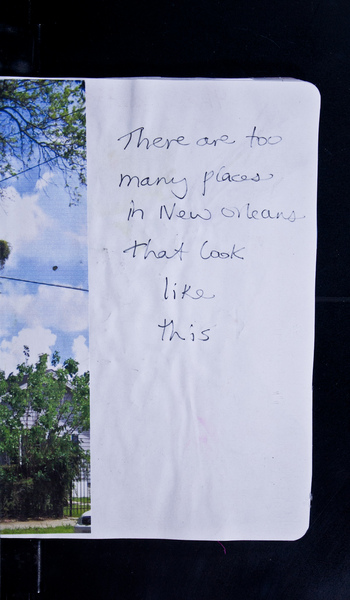 There are too
many places
in New orleans
that look
like
this